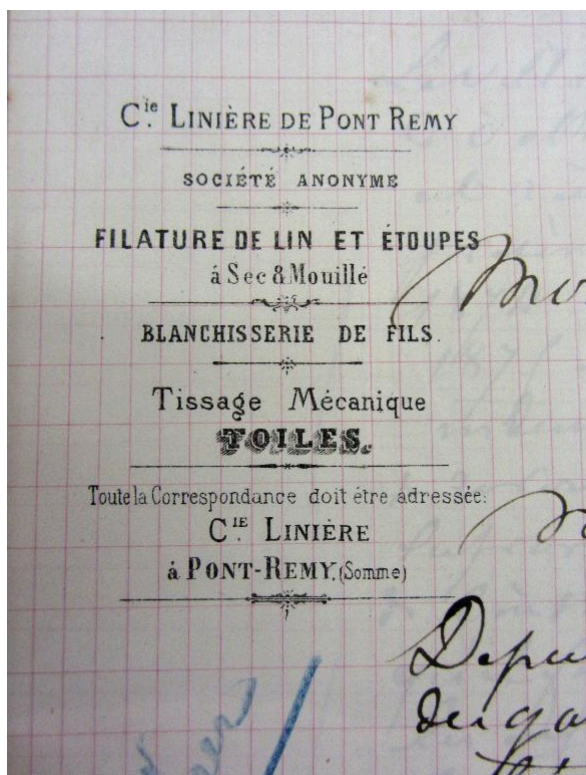 Cie. LINIÈRE DE PONT REMY
SOCIÉTÉ ANONYME
FILATURE DE LIN ET ÉTOUPES
á Sec & Mouillé
BLANCHISSERIE DE FILS.
Tissage Mécanique
TOILES.
Toute la Correspondance doit être adressée:
CIE. LINIÈRE
á PONT-REMY. (Somme)